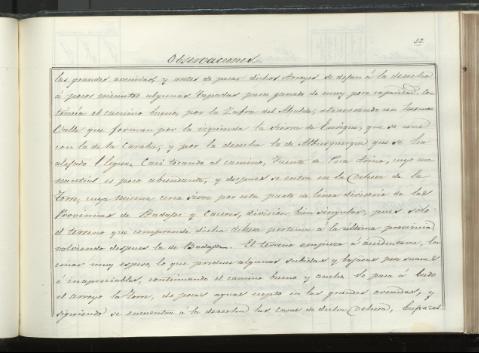 52
Observaciones
las grandes avenidas, y antes de pasar dichos Arroyos se dejan á la derecha
á pocos minutos algunas Tapadas para ganado de muy poca capacidad. Con-
tinúa el camino bueno, por la Zafra del observando un hermoso
Valle que forman por la izquierda la Sierra de que se une
con la de la y por la derecha la de Alburquerque que se ha
alejado Casi tocando el camino, Fuente de cuyo
manantial es poco abundante, y despues se entra en la Dehesa de la
Torre, cuya misma casa sirve por esta parte de linea divisoria de las
Provincias de Badajoz y Caceres, división bien singular, pues solo
el terreno que comprende dicha dehesa pertenece á la última provincia
volviendo despues la de Badajoz. El terreno empieza á accidentarse, las
muy espeso, lo que produce algunas subidas y bajadas pero suaves
é inapreciables, continuando el camino bueno y ancho. Se pasa á bado
el arroyo la Torre, de pocas aguas escepto en las grandes avenidas, y
siguiendo se encuentra á la derecha las casas de dicha Dehesa,